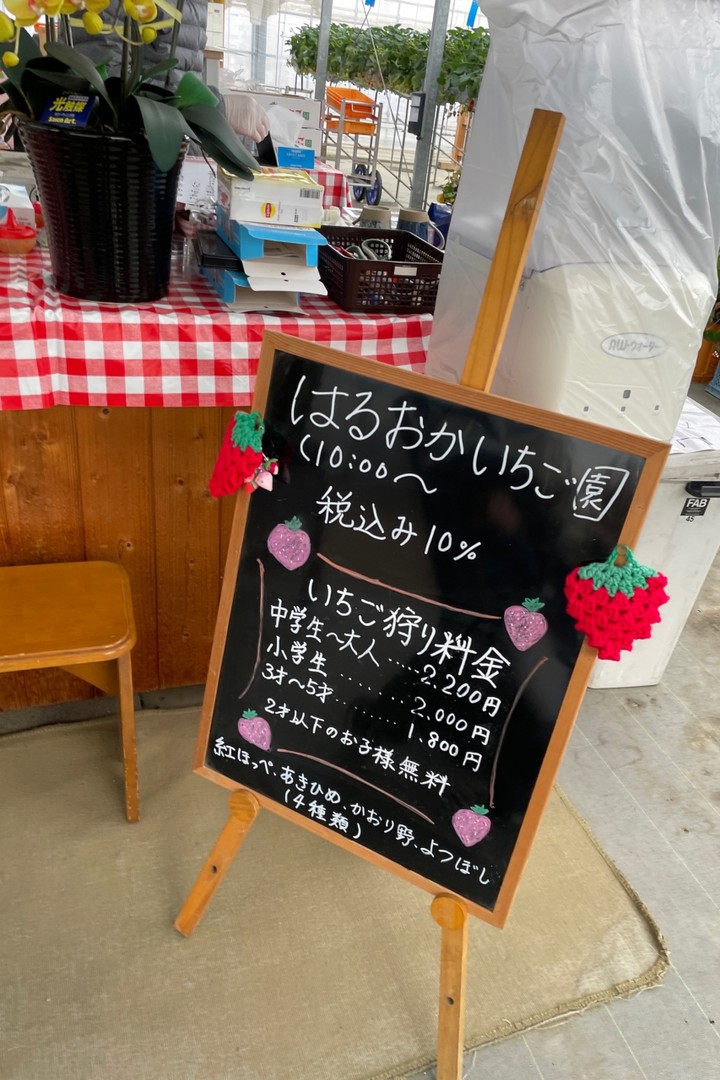 はるおかいちご園
(10:00〜
税込み10%
いちご狩り料金
中学生〜大人......2,200円
小学生.........2,000円
3才〜5才.........1,800円
2才以下のお子様無料
紅ほっぺ、あきひめ、かおり野、よつぼし
(4種類)
光触媒
FAB
45